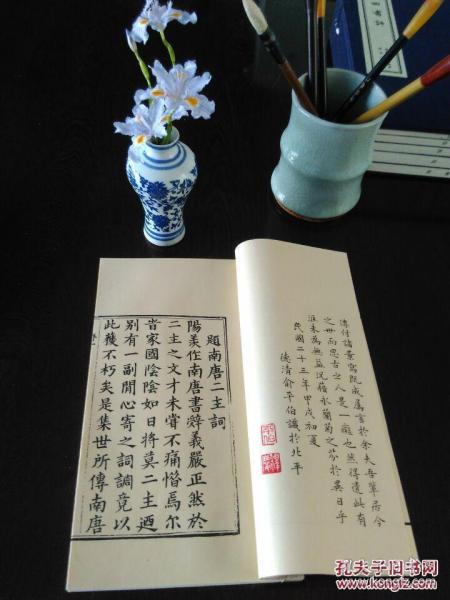 四書評
傳付諸景寫既成属言於余夫吾輩居今
之世而思古之人是一癡也然得遺此有
涯未為無益況蘅永蘭菊之芬於異日乎
民國二十三年甲戌初夏
德清俞平伯識於北平
題南唐二主詞
陽羨作南唐書辤義嚴正然於
二主之文才未嘗不痛惜焉尔
昔家國陰陰如日將莫二主迺
别有一副閒心寄之詞調竟以
此獲不朽矣是集世所傳南唐
孔夫子旧书网
www.kongfz.com